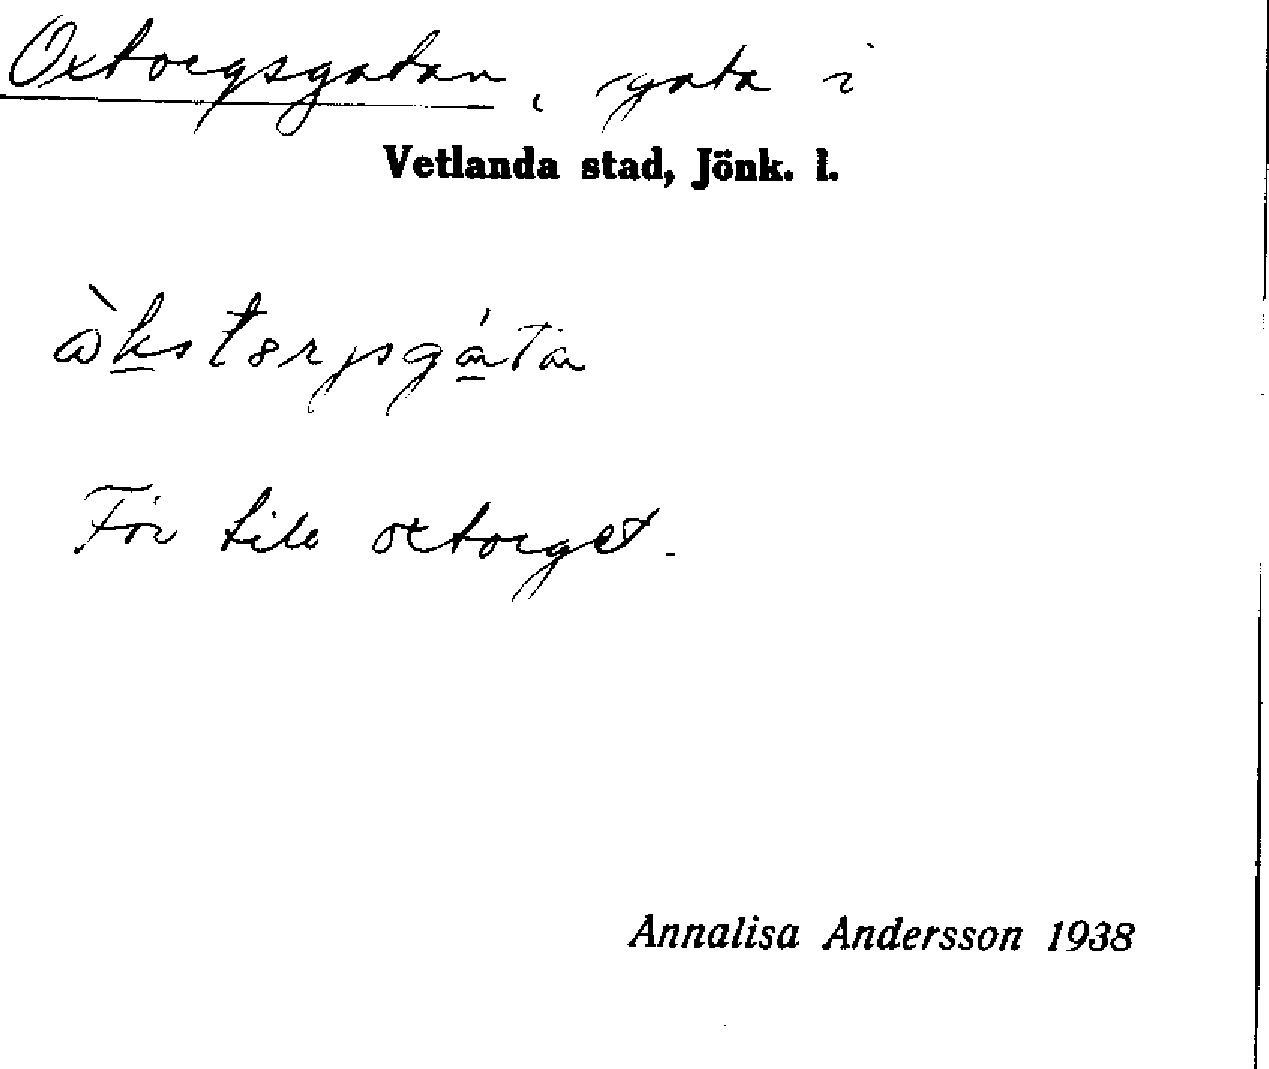 Oxtorgsgatan, gata i
Vetlanda stad, Jönk. l.
För till oxtorget.
Annalisa Andersson 1938